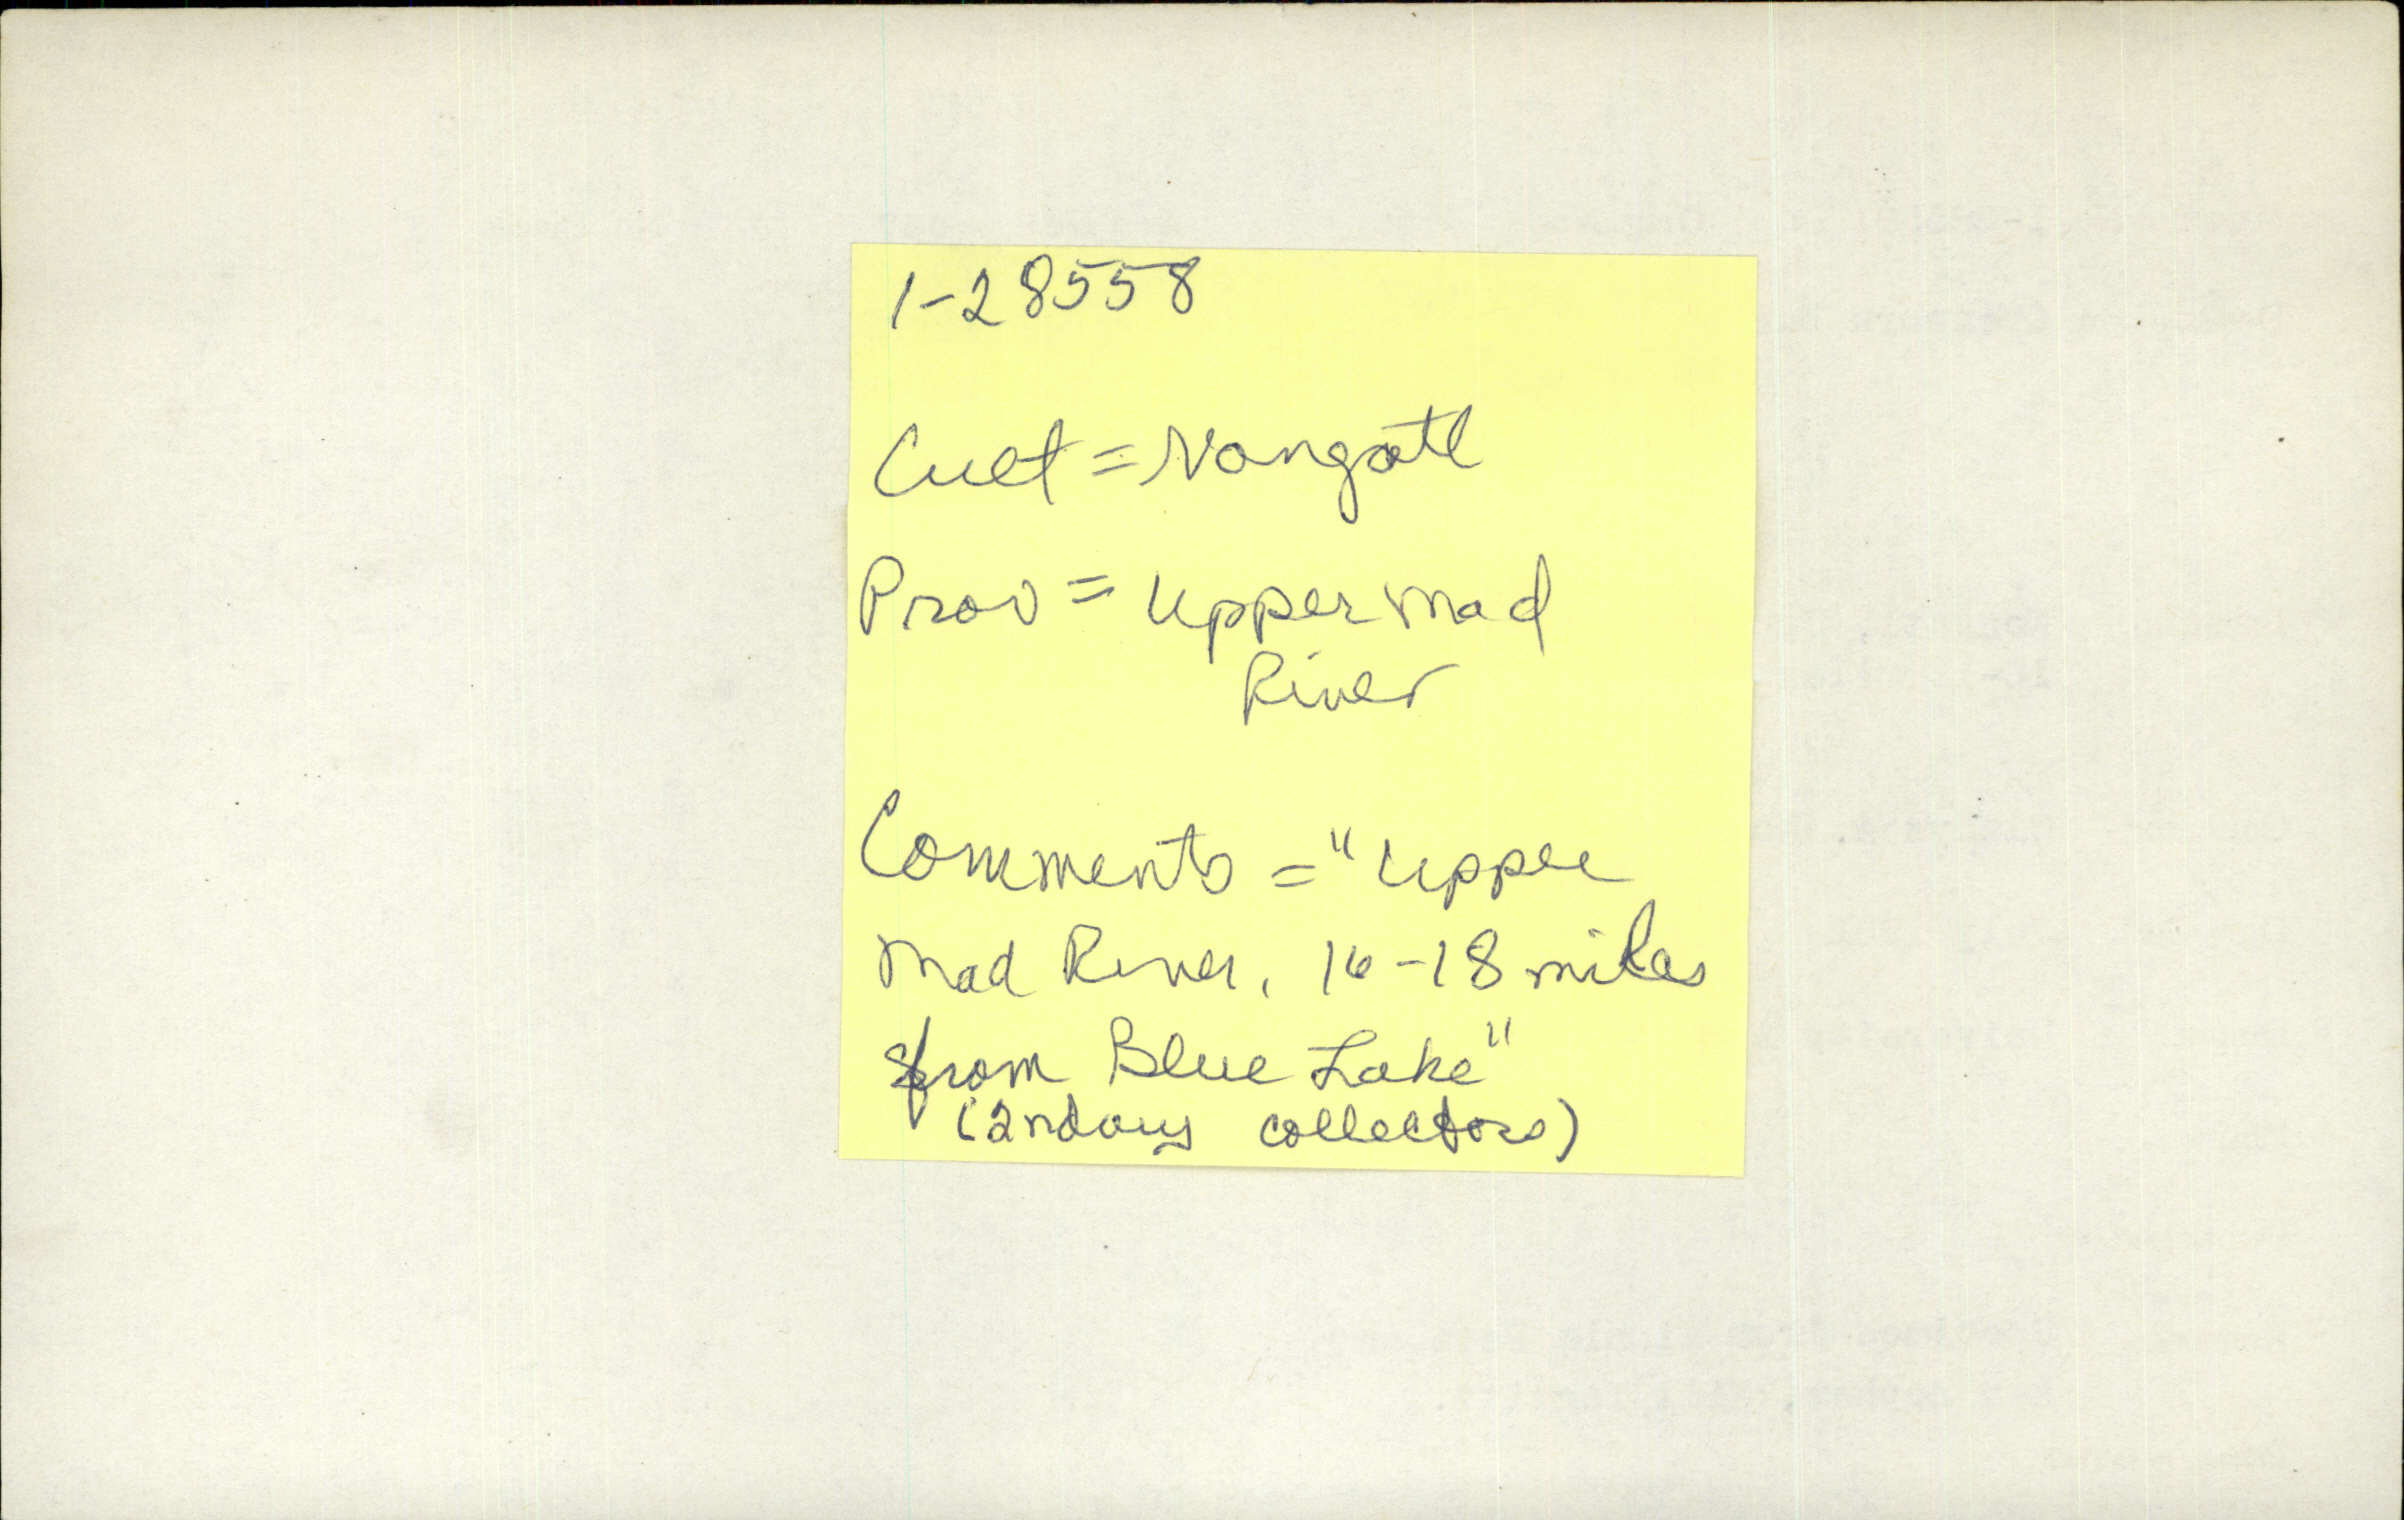 1-28558
Cult = Nongatl
Prov = Upper Mad
River
Comments = "Upper
Mad River, 16-18 miles
from Blue Lake"
(2ndary collectors)